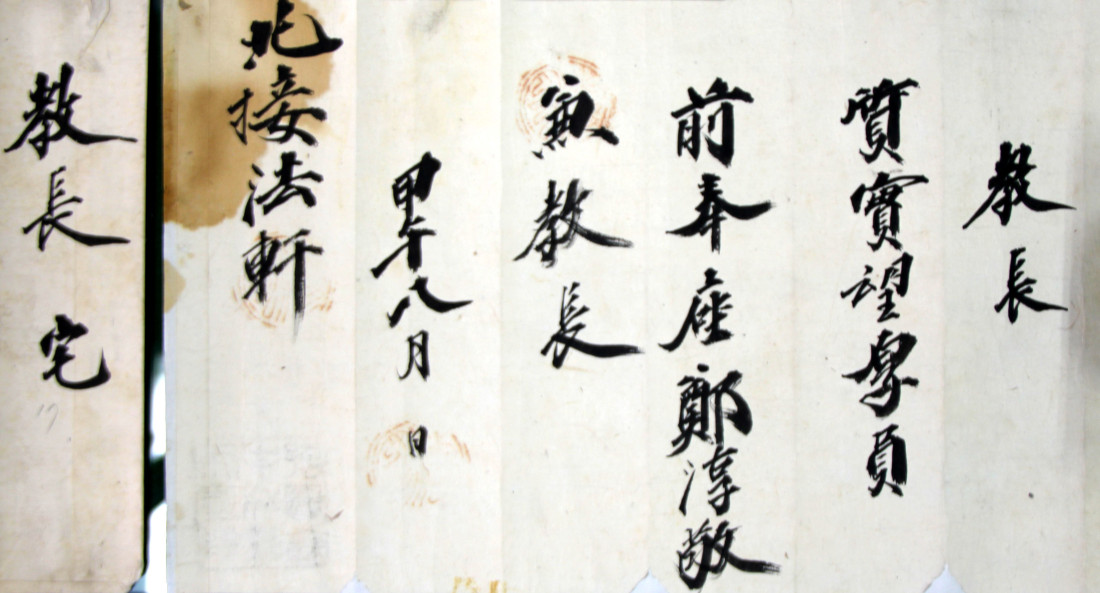 教長
質實望厚員
前奉座鄭淳敬
教長
甲午八月 日
北接法軒
教長 宅
17